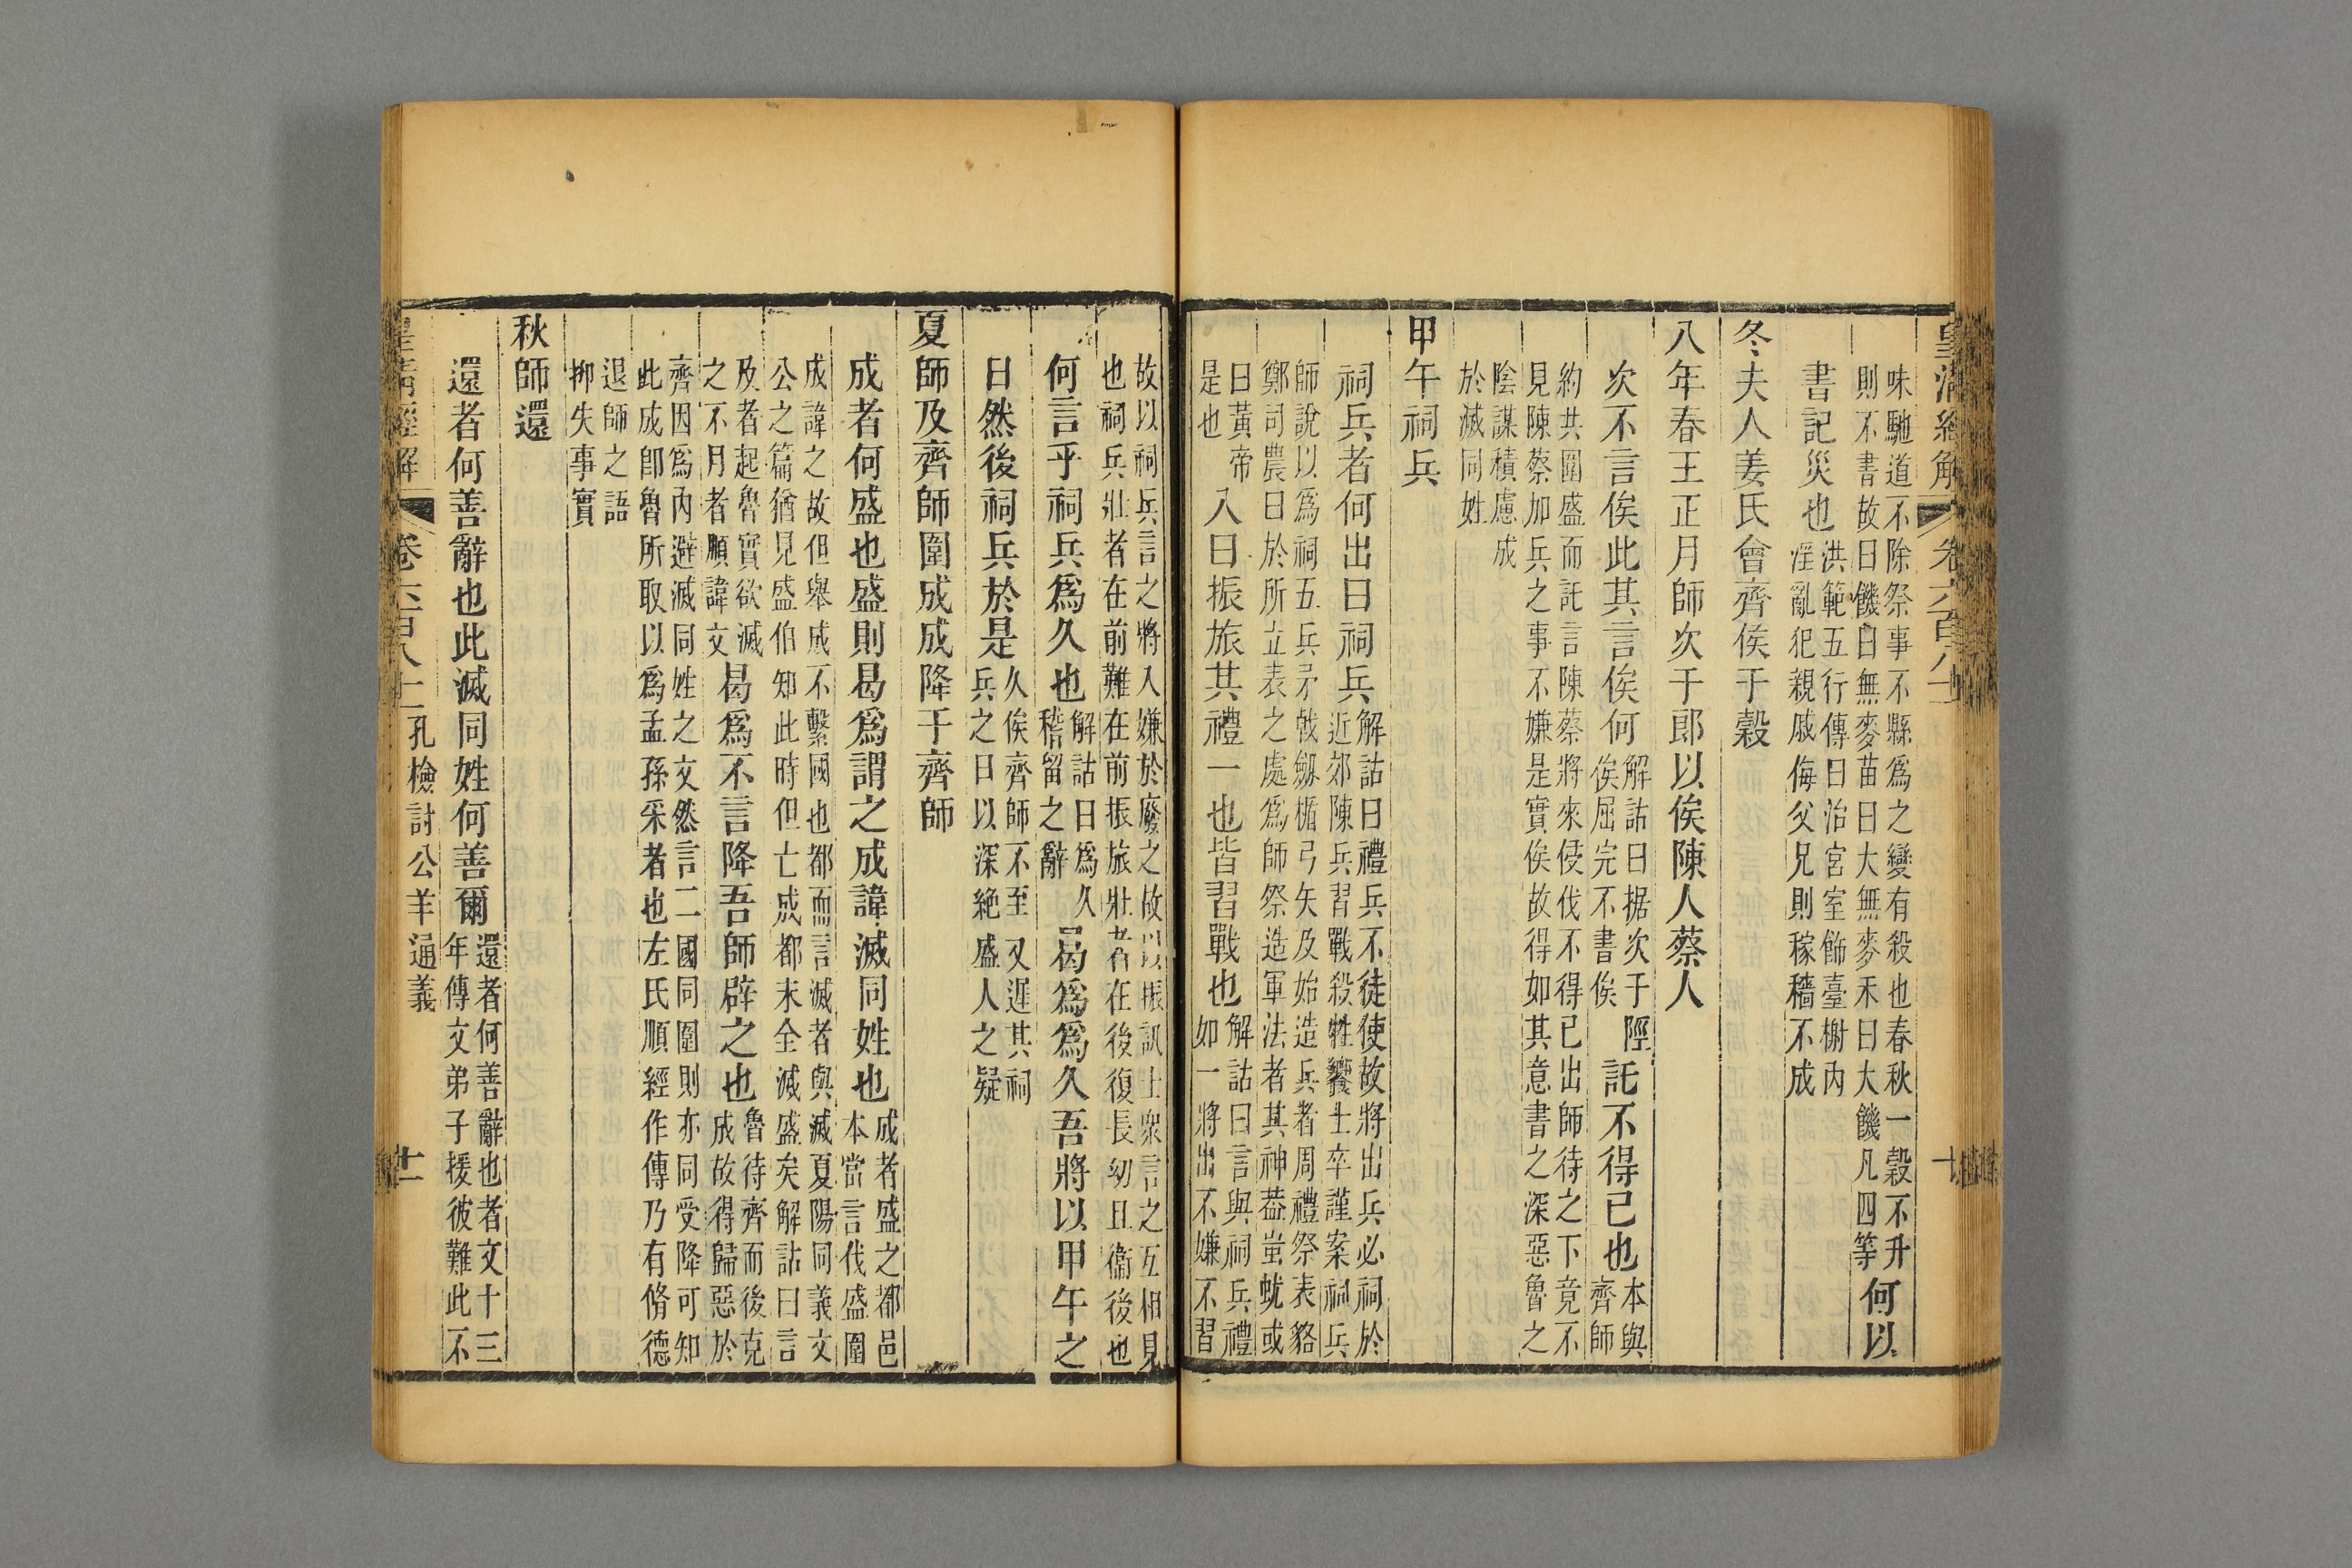 皇清經解 卷六百八十一
味馳道不除祭事不縣爲之變有殺也春秋一穀不升
則不書故曰饑曰無麥苗曰大無麥禾曰大饑凡四等
何以
書記災也
洪範五行傳曰治宮室飾臺榭內
淫亂犯親戚侮父兄則稼穡不成
冬夫人姜氏會齊侯于穀
八年春王正月師次于郎以俟陳人蔡人
次不言俟此其言俟何
解詁曰据次于陘
俟屈完不書俟
託不得已也
本與
齊師
約共圍盛而託言陳蔡將來侵伐不得已出師待之下竟不
見陳蔡加兵之事不嫌是實俟故得如其意書之深惡魯之
陰謀積慮成
於滅同姓
甲午祠兵
祠兵者何出曰祠兵
解詁曰禮兵不徒使故將出兵必祠於
近郊陳兵習戰殺牲饗士卒謹案祠兵
師說以爲祠五兵矛戟劔楯弓矢及始造兵者周禮祭表貉
鄭司農曰於所立表之處爲師祭造軍法者其神葢蚩蚘或
曰黃帝
是也
入曰振旅其禮一也皆習戰也
解詁曰言與祠兵禮
如一將出不嫌不習
故以祠兵言之將入嫌於廢之故以振訊士衆言之互相見
也祠兵壯者在前難在前振旅壯者在後復長幼且衞後也
何言乎祠兵爲久也
解詁曰爲久
稽留之辭
曷爲爲久吾將以甲午之
日然後祠兵於是
久俟齊師不至又遲其祠
兵之日以深絶盛人之疑
夏師及齊師圍成成降于齊師
成者何盛也盛則曷爲謂之成諱滅同姓也
成者盛之都邑
本當言伐盛圍
成諱之故但舉成不繫國也都而言滅者與滅夏陽同義文
公之篇猶見盛伯知此時但亡成都未全滅盛矣解詁曰言
及者起魯實欲滅
之不月者順諱文
曷爲不言降吾師辟之也
魯待齊而後克
成故得歸惡於
齊因爲內避滅同姓之文然言二國同圍則亦同受降可知
此成卽魯所取以爲孟孫采者也左氏順經作傳乃有脩德
退師之語
抑失事實
秋師還
還者何善辭也此滅同姓何善爾
還者何善辭也者文十三
年傳文弟子援彼難此不
皇清經解 卷六百八十一 孔檢討公羊通義 十一